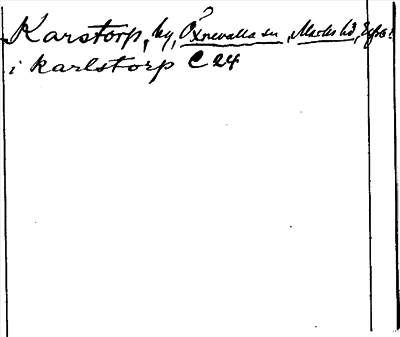 Karstorp, by, Öxnevalla sn, Marks hd, Älfsb.
i karlstorp C 24